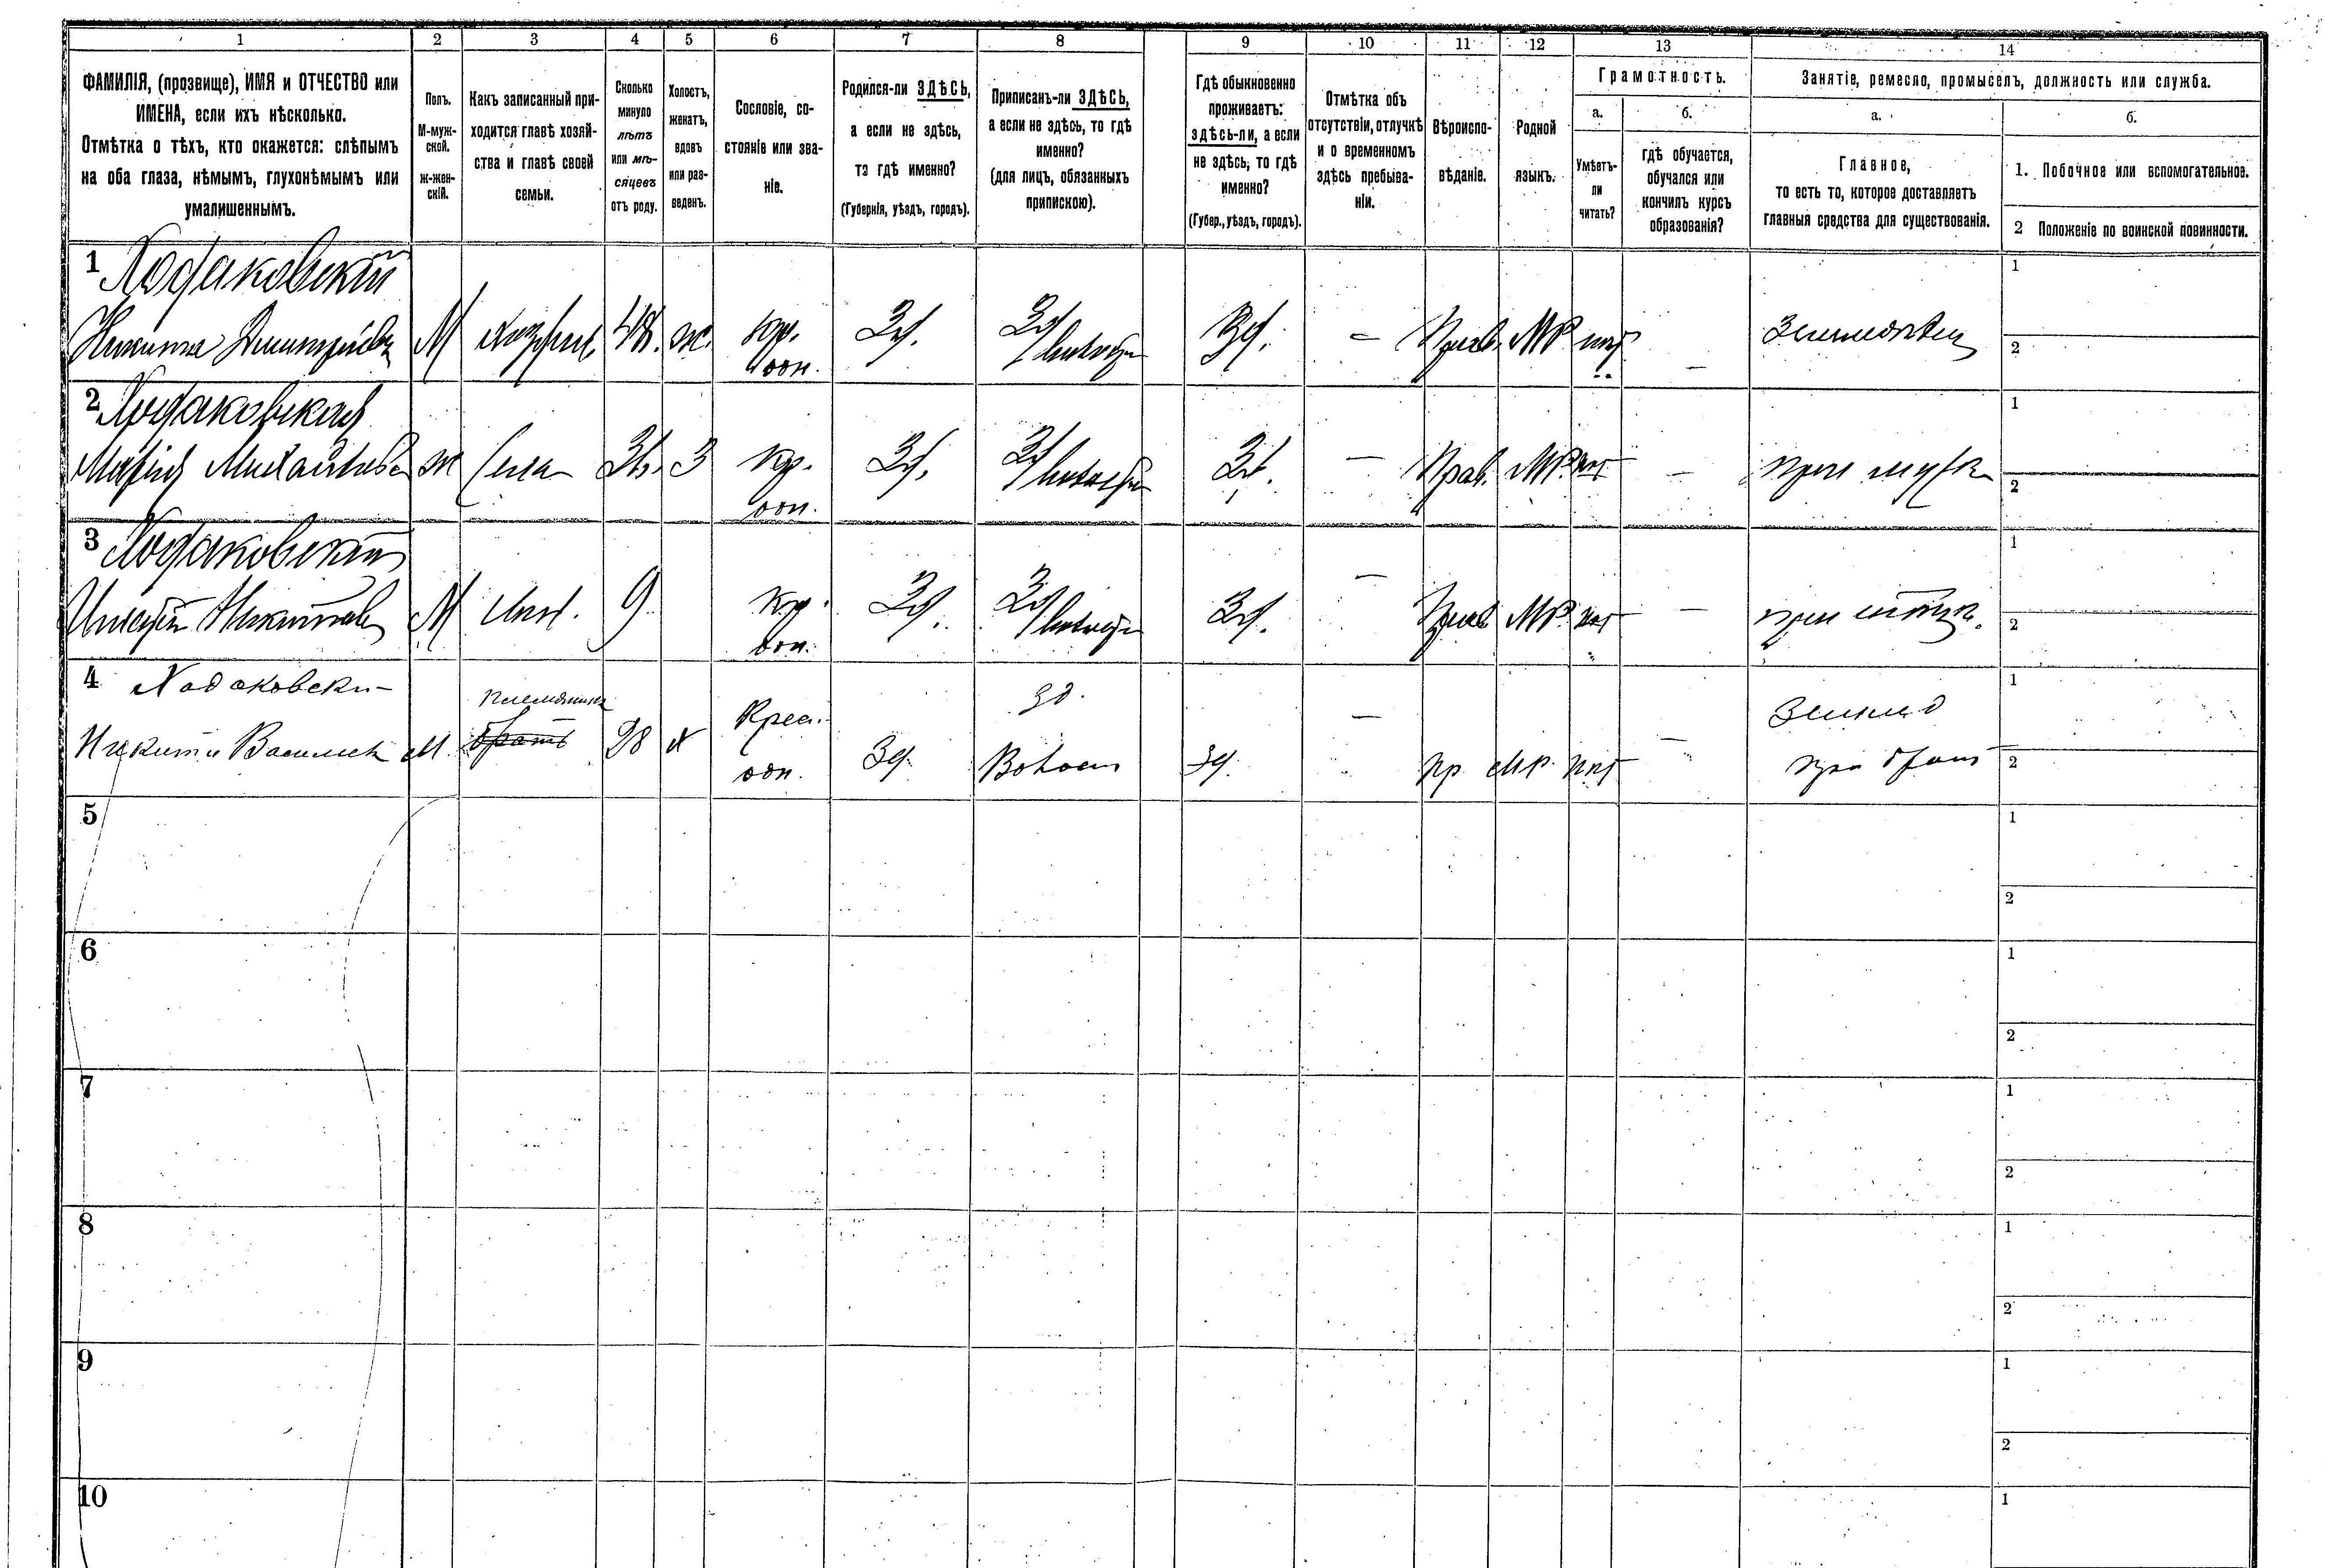 1 2 3 4 5 6 7 8 9 10 11 12 13 14
ФАМИЛІЯ, (прозвище), ИМЯ и ОТЧЕСТВО или
ИМЕНА, если ихъ нѣсколько.
Отмѣтка о тѣхъ, кто окажется: слѣпымъ
на оба глаза, нѣмымъ, глухонѣмымъ или
умалишеннымъ.
Полъ.
М-муж-
ской.
Ж-жен-
скій.
Какъ записанный при-
ходится главѣ хозяй-
ства и главѣ своей
семьи.
Сколько
минуло
лѣтъ
или мѣ-
сяцевъ
отъ роду.
Холостъ,
женатъ,
вдовъ
или раз-
веденъ.
Сословіе, со-
стояніе или зва-
ніе.
Родился-ли ЗДѢСЬ,
а если не здѣсь,
то гдѣ именно?
(Губернія, уѣздъ, городъ).
Приписанъ-ли ЗДѢСЬ,
а если не здѣсь, то гдѣ
именно?
(для лицъ, обязанныхъ
припискою).
Гдѣ обыкновенно
проживаетъ:
здѣсь-ли, а если
не здѣсь, то гдѣ
именно?
(Губер., уѣздъ, городъ).
Отмѣтка объ
отсутствіи, отлучкѣ
и о временномъ
здѣсь пребыва-
ніи.
Вѣроиспо-
вѣданіе.
Родной
языкъ.
Грамотность.
а.
Умѣетъ-
ли
читать?
б.
гдѣ обучается,
обучался или
кончилъ курсъ
образованія?
Занятіе, ремесло, промыселъ, должность или служба.
а.
Главное,
то есть то, которое доставляетъ
главныя средства для существованія.
б.
1. Побочное или вспомогательное.
2 Положеніе по воинской повинности.
1 Ходаковскій 1
Никита Дмитріевъ М хозяин. 48. ж. кр. Зд. Зд. Зд. — Прав. МР нѣт Земледѣлец 2
общ. —
2 Ходаковская 1
Марія Михайлова ж жена З кр. Зд. Зд. Зд. — Прав. МР. нѣт — при мужѣ 2
общ.
3 Ходаковскій 1
Никитовъ М сын. 9 кр. Зд. Зд. Зд. — Прав МР. нѣт — при отцѣ. 2
общ.
4 Ходаковски 1
племянник зд. Землед
Никита Васильев М. братъ 28 х Крес. Зд. Зд. — пр МР. нѣт — при брат 2
общ.
5 1
2
6 1
2
7 1
2
8 1
2
9 1
2
10 1